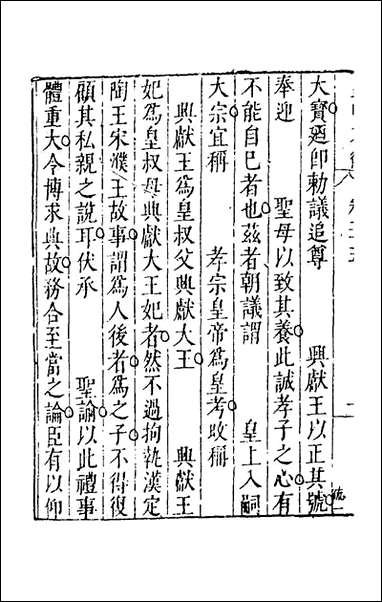 大寶廼即勅議追尊　興獻王以正其號
奉迎　聖母以致其養此誠孝子之心有
不能自已者也茲者朝議謂　皇上入嗣
大宗宜稱　孝宗皇帝為皇考改稱
興獻王為皇叔父興獻大王　興獻王
妃為皇叔母興獻大王妃者然不過拘執漢定
陶王宋濮王故事謂為人後者為之子不得復
顧其私親之說耳伏承　聖諭以此禮事
體重大令博求典故務合至當之論臣有以仰